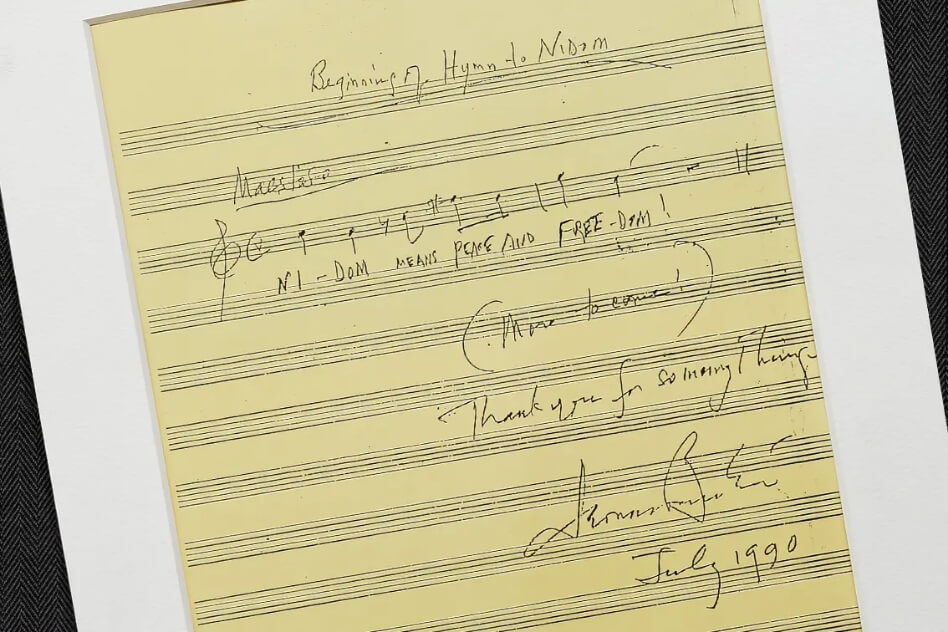 Beginning of Hymn to NIDOM
Maestoso
NI - DOM MEANS PEACE AND FREE - DOM!
(More to come!)
Thank you for so many things
July 1990